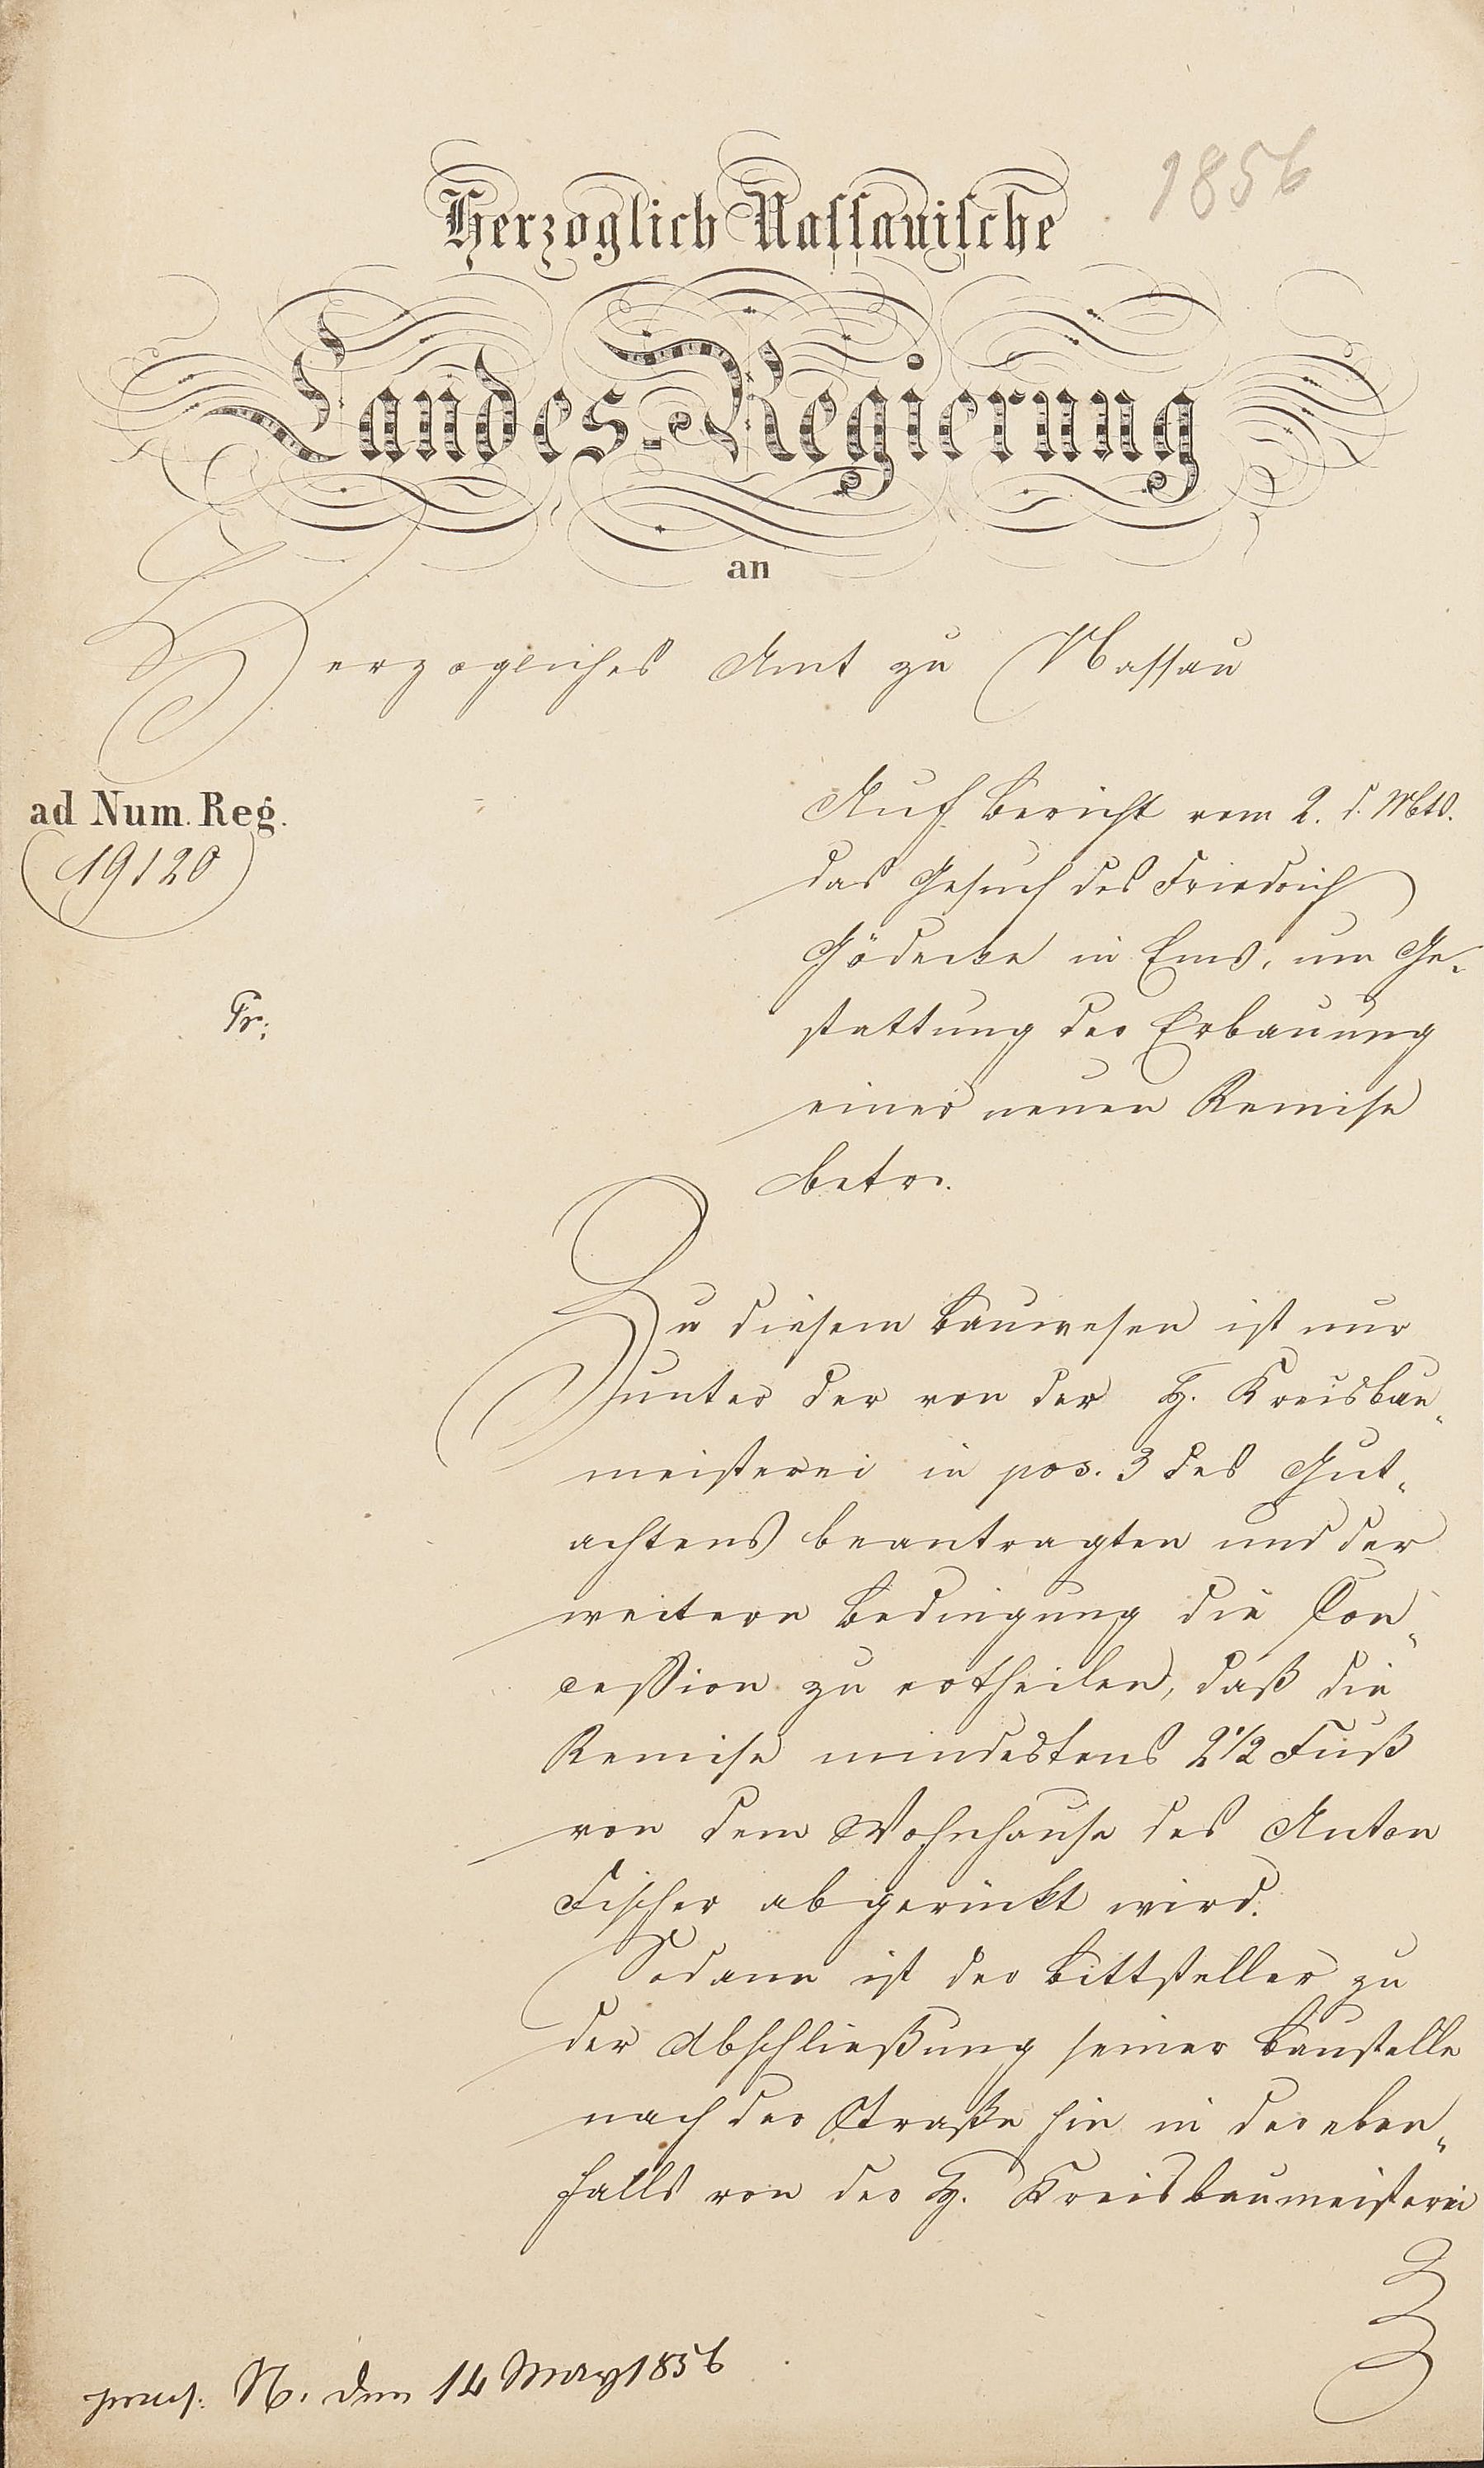 1856
Herzoglich Nassauische
Landes-Regierung
an
Herzogliches Amt zu Nassau
ad Num. Reg.
19120
Auf Bericht vom 2. d. Mts.
das Gesuch des Friedrich
Gödecke in Ems, um Ge-
stattung der Erbauung
einer neuen Remise
betr.
Fr:
Zu diesem Bauwesen ist nur
unter der von der H. Kreisbau-
meisterei in pos. 3 des Gut-
achtens beantragten und der
weitern Bedingung die Con-
cession zu ertheilen, daß die
Remise mindestens 2 1/2 Fuß
von dem Wohnhause des Anton
Fischer abgerückt wird.
Sodann ist der Bittsteller zu
der Abschließung seiner Baustelle
nach der Straße hin in der eben-
falls von der H. Kreisbaumeisterei
praes. N. den 14 May 1856